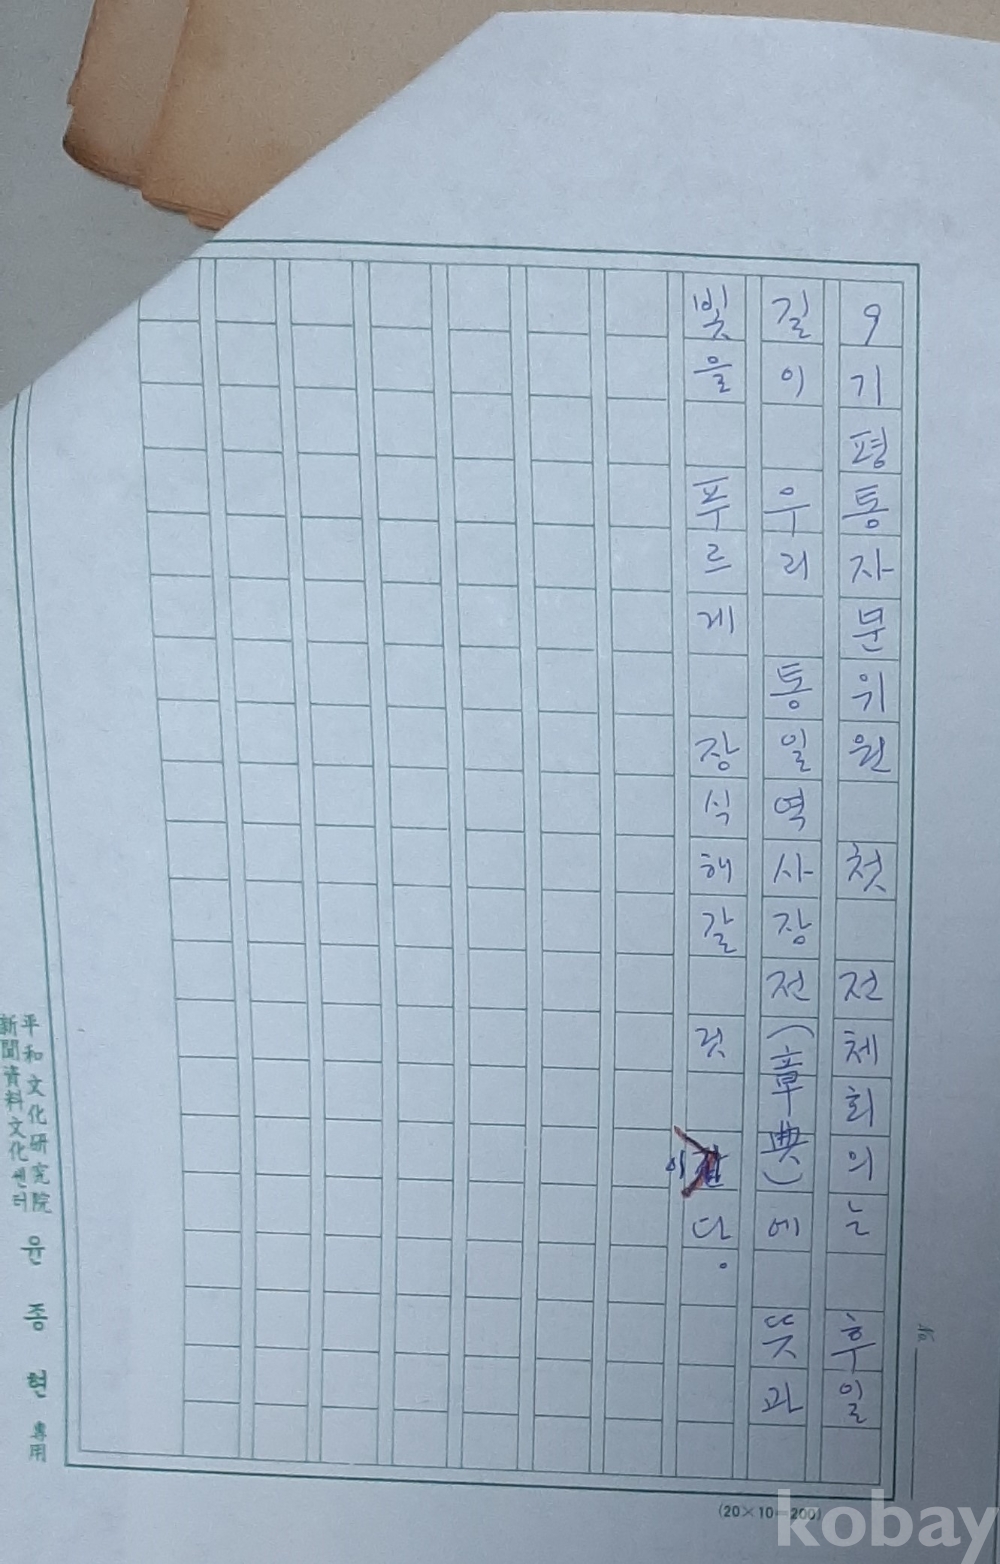 9기평통자문위원 첫 전체회의는 후일
길이 우리 통일역사장전(章典)에 뜻과
빛을 푸르게 장식해갈 것이다.
No.
平和文化研究院
新聞資料文化센터
윤종현 專用
(20×10=200)
kobay